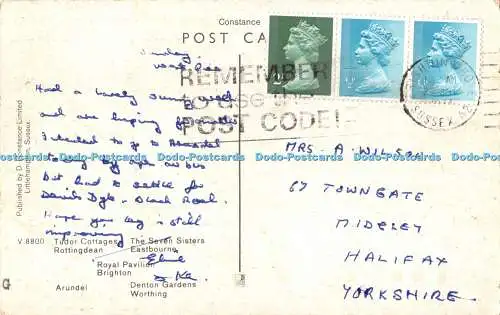 Constance
POST CA
Sunday
REMEMBER
to use the
POST CODE!
SUSSEX
Had a lovely sunny week
and are hoping for another
I intended to go to Arundel
today by open air bus
but had to settle for
Devils Dyke - Black Road.
Hope your leg is still
improving
Elsie
& Ken
MRS. A. WILSON
67 TOWNGATE
MIDGLEY
HALIFAX
YORKSHIRE.
Published by D. Constance Limited
Littlehampton, Sussex.
V.8800
Tudor Cottages
Rottingdean
The Seven Sisters
Eastbourne
Royal Pavilion
Brighton
Arundel
Denton Gardens
Worthing
G
Dodo-Postcards Dodo-Postcards Dodo-Postcards Dodo-Postcards Dodo-Postcards Dodo-Postcards